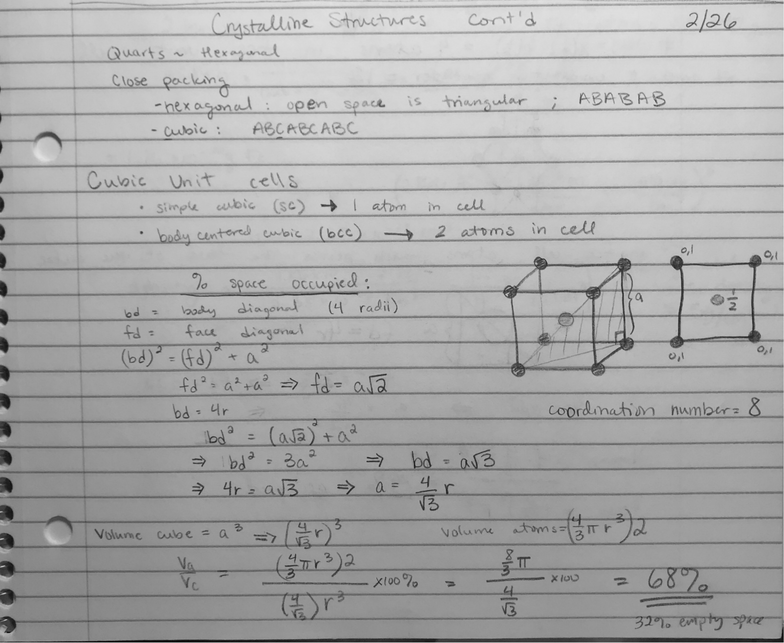 Crystalline Structures Cont'd 2/26
Quarts ~ Hexagonal
Close packing
- hexagonal : open space is triangular ; ABABAB
- cubic : ABCABCABC
Cubic Unit cells
• simple cubic (sc) → 1 atom in cell
• body centered cubic (bcc) → 2 atoms in cell
% space occupied:
bd = body diagonal (4 radii)
fd = face diagonal
(bd)² = (fd)² + a²
fd² = a² + a² ⇒ fd = a√2
bd = 4r
bd² = (a√2)² + a²
⇒ bd² = 3a² ⇒ bd = a√3
⇒ 4r = a√3 ⇒ a = 4/√3 r
a
0,1 0,1
1/2
0,1 0,1
coordination number = 8
Volume cube = a³ ⇒ (4/√3 r)³ Volume atoms = (4/3 π r³)2
Va/Vc = (4/3 π r³)2 / (4/√3) r³ x100% = 8/3 π / 4/√3 x100 = 68%
32% empty space